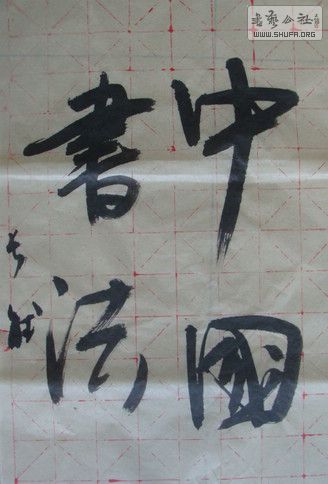 中國
書法
書藝公社
WWW.SHUFA.ORG